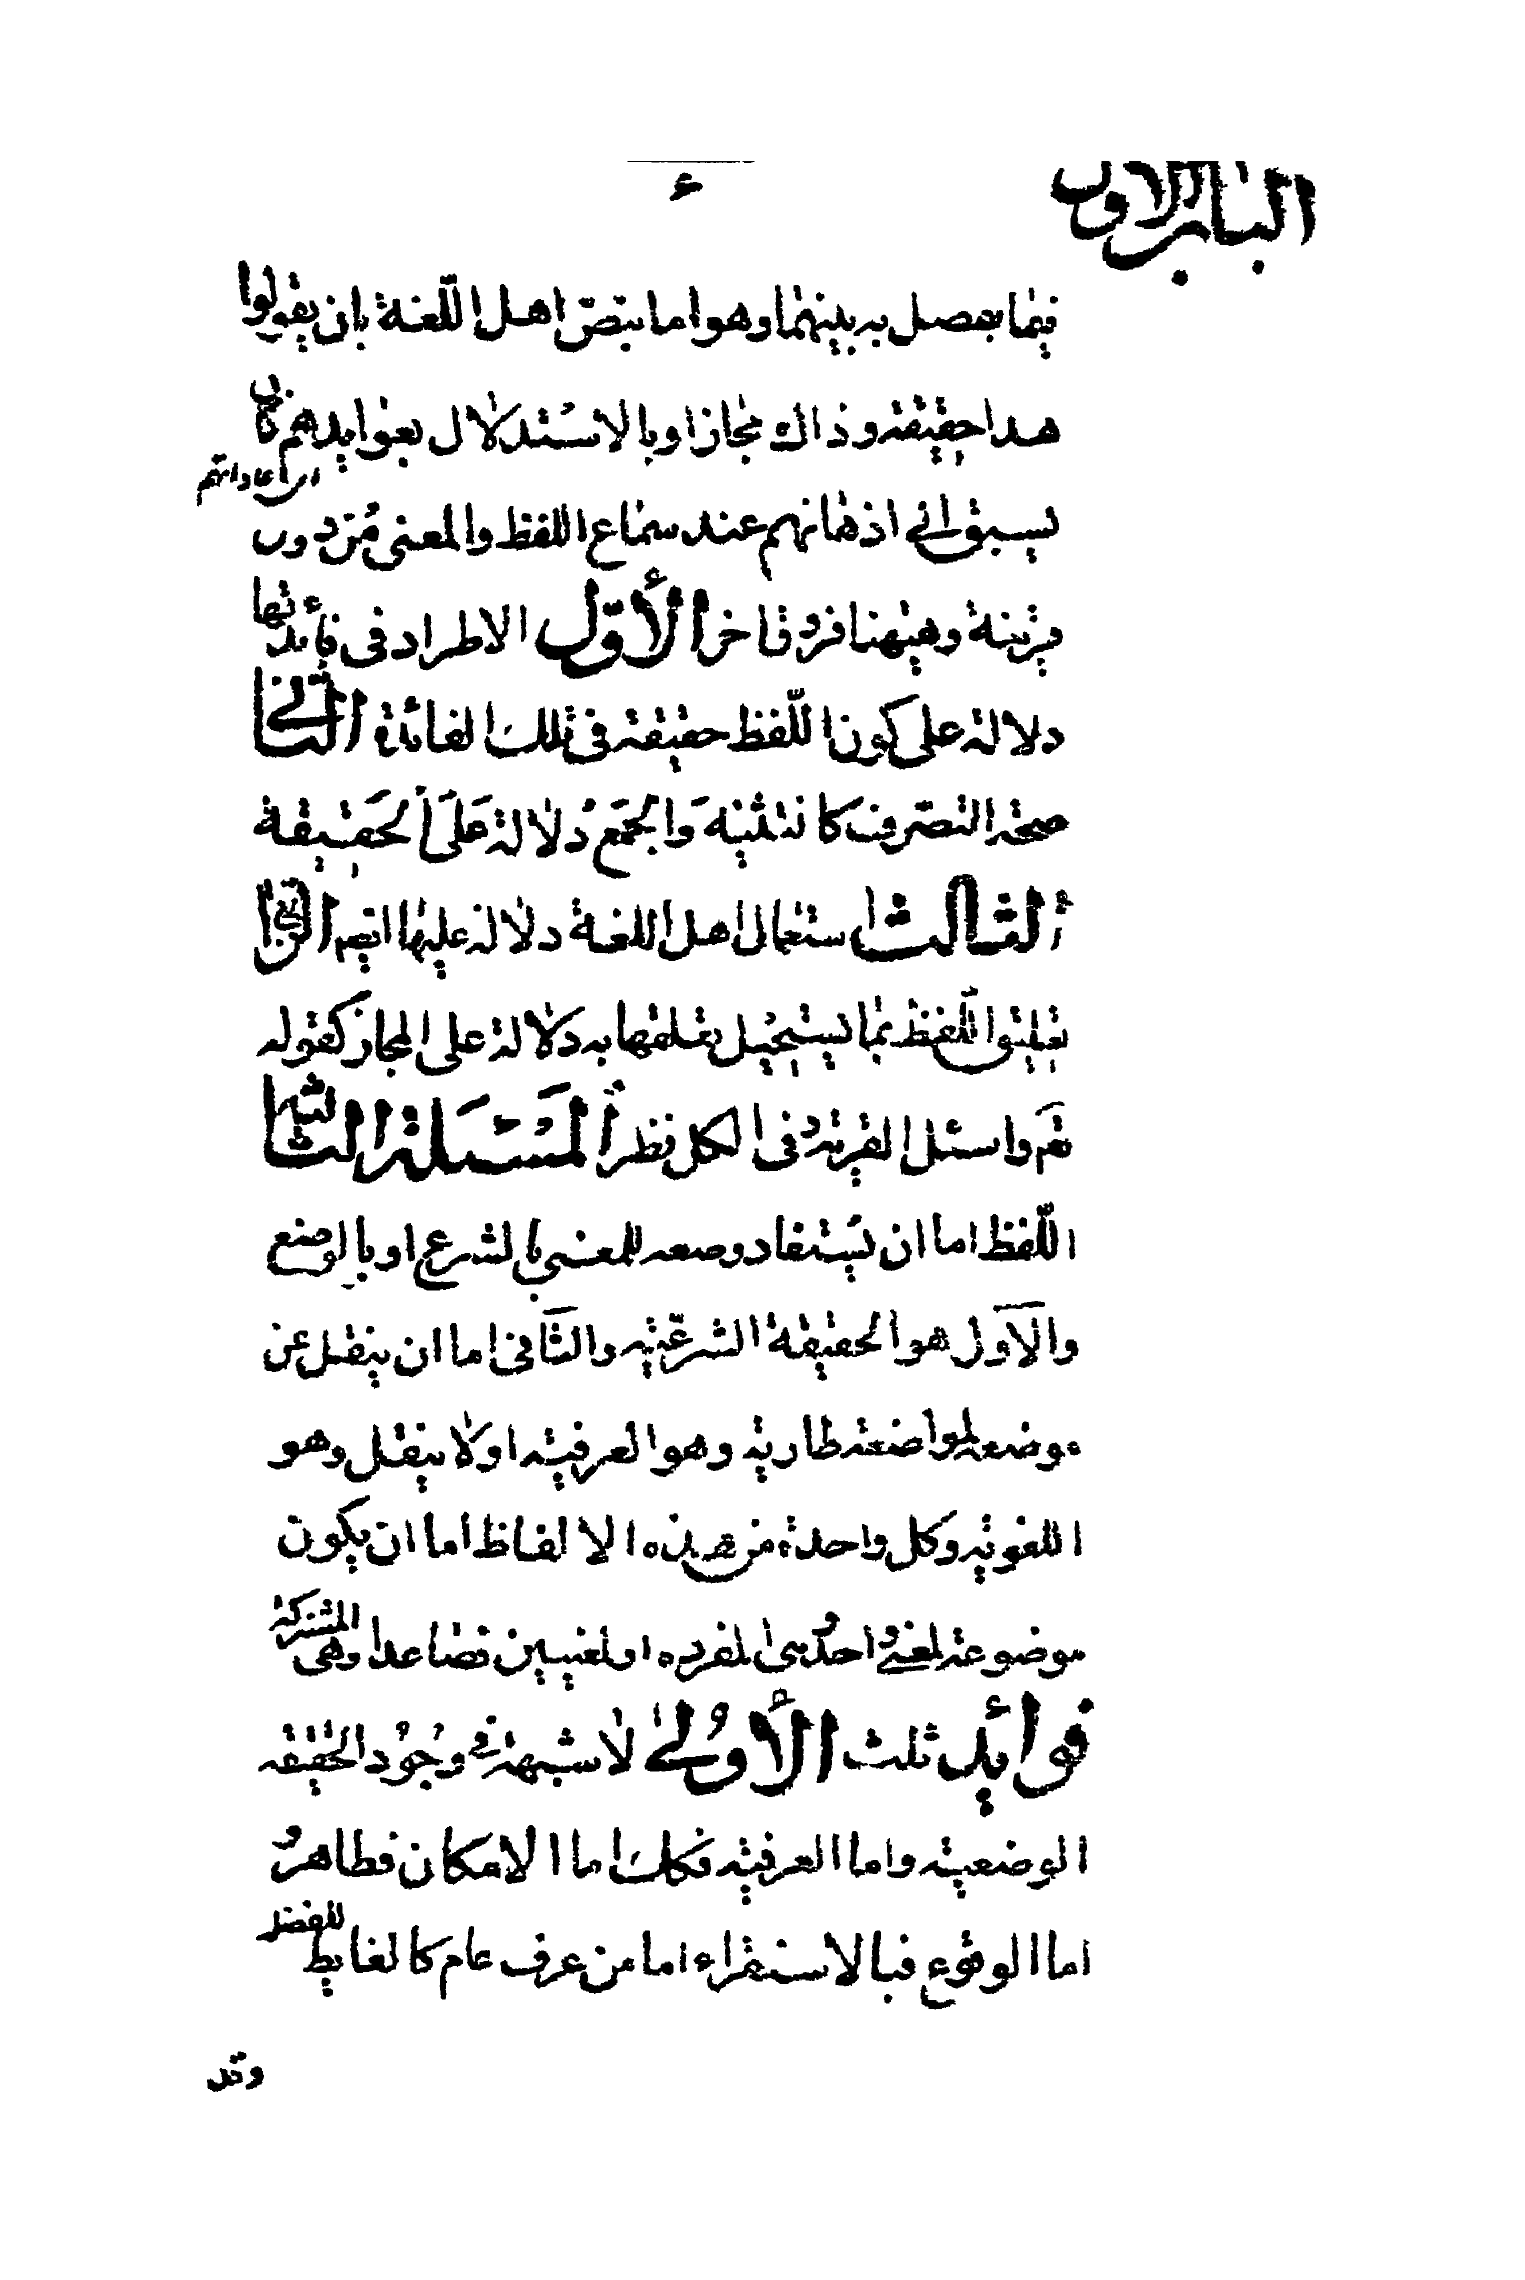 الباب الاول
٤
فيما يفصل به بينهما وهو اما بنصّ اهل اللّغة بان يقولوا
هذا حقيقة وذاك مجاز او بالاستدلال بعوايدهم كان
اى عاداتهم
يسبق الى اذهانهم عند سماع اللفظ والمعنى من دون
قرينة وهيهنا فروق اخر الأوّل الاطراد فى فائدتها
دلالة على كون اللّفظ حقيقة فى تلك الفائدة الثانى
صحة التصرّف كالتثنية وَالجمَع دلالة عَلَى الحَقيقة
الثالث استعمال اهل اللغة دلالة عليها ايضا الرابع
تعليق اللّفظ بما يستحيل تعلقها به دلالة على المجاز كقوله
تعم واسئل القرية وفى الكل نظر المَسْئلة الثالثة
اللّفظ اما ان يُستفاد وضعه للمعنى بالشرع او بالوضع
والاوّل هو الحقيقة الشرعيّة والثانى اما ان ينقل عن
موضعه لمواضعة طارية وهو العرفية اولا ينقل وهو
اللغوية وكل واحدة من هذه الالفاظ اما ان يكون
موضوعة لمعنى واحد وهى المفرده او لمعنيين فصاعدا وهى المشتركة
فوائد ثلث الأولى لا شبهة فى وجُود الحقيقة
الوضعية واما العرفية فكك اما الامكان فظاهر و
اما الوقوع فبالاستقراء اما من عرف عام كالغايط للفضلة
وقد